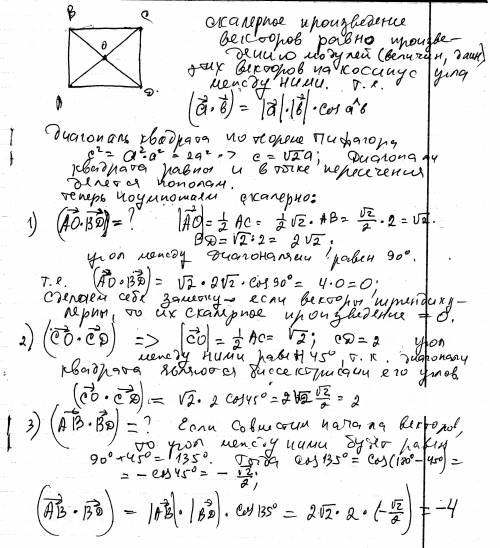 B C
O
A D
скалярное произведение
векторов равно произве-
дению модулей (величин, длин)
этих векторов на косинус угла
между ними. т.е.
(a⃗·b⃗) = |a⃗|·|b⃗|·cos a^b
Диагональ квадрата по теореме Пифагора
c² = a²+a² = 2a² => c = √2a; Диагонали
квадрата равны и в точке пересечения
делятся пополам.
Теперь поумножаем скалярно:
1) (AO⃗·BD⃗) = ? |AO⃗| = 1/2 AC = 1/2 √2 · AB = √2/2 · 2 = √2.
BD = √2·2 = 2√2.
угол между диагоналями равен 90°.
т.е. (AO⃗·BD⃗) = √2·2√2·cos 90° = 4·0 = 0;
Сделаем себе заметку - если векторы перпендику-
лярны, то их скалярное произведение = 0.
2) (CO⃗·CD⃗) => |CO⃗| = 1/2 AC = √2; CD = 2 угол
между ними равен 45°, т.к. диагонали
квадрата являются биссектрисами его углов
(CO⃗·CD⃗) = √2·2 cos 45° = 2√2 √2/2 = 2
3) (AB⃗·BD⃗) = ? Если совместим начала векторов,
то угол между ними будет равен
90°+45° = 135°. Тогда cos 135° = cos(180°-45°) =
= -cos 45° = -√2/2;
(AB⃗·BD⃗) = |AB⃗|·|BD⃗|·cos 135° = 2√2·2·(-√2/2) = -4